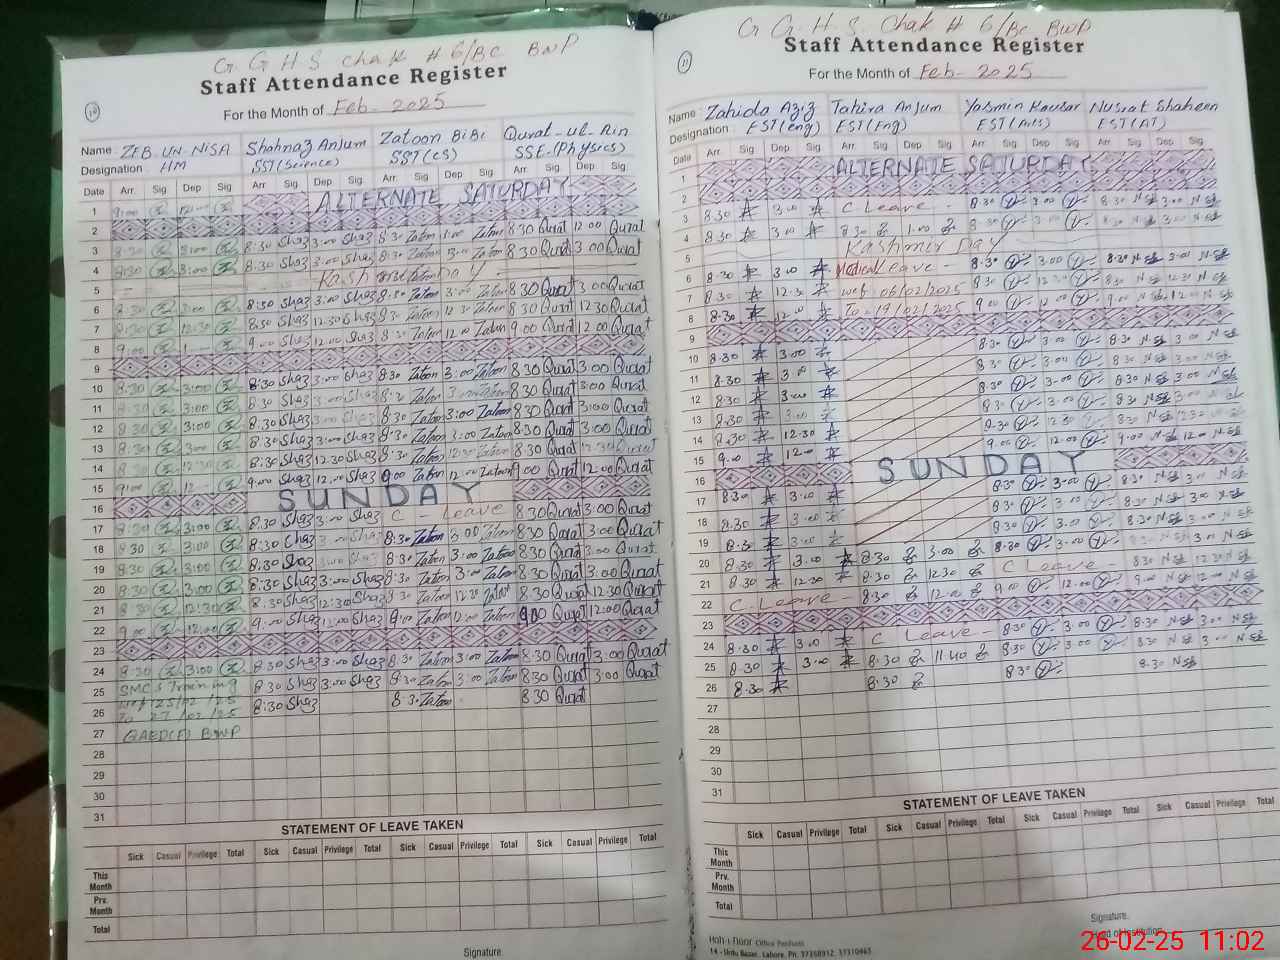 G. G H S Chak # 6/BC BWP
Staff Attendance Register
For the Month of Feb - 2025
10
Name: ZEB-UN-NISA Shahnaz Anjum Zatoon BiBi Qurat-ul-Ain
Designation: HM SST(Science) SST(CS) SSE.(Physics)
Date Arr. Sig Dep Sig Arr Sig Dep Sig Arr. Sig. Dep Sig. Arr Sig. Dep Sig.
1 ALTERNATE SATURDAY
2
3 8:30 3:00 8:30 Shaz 3:00 Shaz 8:30 Zatoon 3:00 Zatoon 8 30 Qurat 3 00 Qurat
4 8:30 3:00
5 Kashmir Day
6 8:30 3:00 8:30 Shaz 3:00 Shaz 8:30 Zatoon 3:00 Zatoon 8 30 Qurat 3 00 Qurat
7 8:30 12:30 8:30 Shaz 12:30 Shaz 8:30 Zatoon 8 30 Qurat 12 30 Qurat
8 9:00 9:00 Shaz 12:00 Shaz 12:00 Zatoon 9 00 Qurat 12 00 Qurat
9
10 8:30 3:00 8:30 Shaz 3:00 Shaz 8:30 Zatoon 3:00 Zatoon 8 30 Qurat 3 00 Qurat
11 8:30 3:00 8:30 Shaz 3:00 Shaz 8:30 Zatoon 8 30 Qurat 3:00 Qurat
12 8:30 3:00 8:30 Shaz 3:00 Shaz 8:30 Zatoon 3:00 Zatoon 8 30 Qurat 3:00 Qurat
13 8:30 3:00 8:30 Shaz 3:00 Shaz 8:30 Zatoon 3:00 Zatoon 8:30 Qurat 3:00 Qurat
14 8:30 12:30 8:30 Shaz 12:30 Shaz 8:30 Zatoon 12:30 Zatoon 8:30 Qurat 12:30
15 9:00 12 9:00 Shaz 12:00 Shaz 9:00 Zatoon 12:00 Zatoon 9 00 Qurat 12 00 Qurat
16 SUNDAY
17 8:30 3:00 8:30 Shaz 3:00 Shaz C - Leave 8 30 Qurat 3:00 Qurat
18 8:30 3:00 8:30 Shaz 3:00 Shaz 8:30 Zatoon 3:00 Zatoon 8:30 Qurat 3:00 Qurat
19 8:30 3:00 8:30 Shaz 8:30 Zatoon 3:00 Zatoon 8 30 Qurat 3:00 Qurat
20 8:30 3:00 8:30 Shaz 3:00 Shaz 8:30 Zatoon 3:00 Zatoon 8 30 Qurat 3:00 Qurat
21 8:30 12:30 8:30 Shaz 12:30 Shaz 8:30 Zatoon 12:30 8:30 Qurat 12:30 Qurat
22 9:00 12:00 9:00 Shaz 12:00 Shaz 9:00 Zatoon 12:00 Zatoon 9:00 Qurat 12:00 Qurat
23
24 8:30 3:00 8:30 Shaz 3:00 Shaz 8:30 Zatoon 3:00 Zatoon 8:30 Qurat 3:00 Qurat
25 SMC's Training 8:30 Shaz 3:00 Shaz 8:30 Zatoon 3:00 Zatoon 8 30 Qurat 3:00 Qurat
26 25/02/25 8:30 Shaz 8:30 Zatoon 8 30 Qurat
To 27/02/25
27 QAED(F) BWP
28
29
30
31
STATEMENT OF LEAVE TAKEN
Sick Casual Privilege Total Sick Casual Privilege Total Sick Casual Privilege Total Sick Casual Privilege Total
This Month
Prv. Month
Total
Signature
G. G. H. S. Chak # 6/BC BWP
Staff Attendance Register
For the Month of Feb - 2025
11
Name: Zahida Aziz Tahira Anjum Yasmin Kausar Nusrat Shaheen
Designation: EST(eng) EST(Eng) EST(Arts) EST(AT)
Date Arr. Sig. Dep Sig. Arr. Sig. Dep Sig. Arr. Sig. Dep Sig. Arr. Sig. Dep Sig.
1 ALTERNATE SATURDAY
2
3 8.30 3.00 C Leave - 8.30 3.00 8.30 3.00
4 8.30 3.00 8.30 1.00 8.30 3.00 8.30 3.00
5 Kashmir Day
6 8.30 3.00 Medical Leave - 8.30 3.00 8.30 3.00
7 8.30 12.30 wef 06/02/2025 8.30 12.30 8.30 12.30
8 8.30 12.00 To - 19/02/2025 9.00 12.00 9.00 12.00
9
10 8.30 3.00 8.30 3.00 8.30 3.00
11 8.30 3.00 8.30 3.00 8.30 3.00
12 8.30 3.00 8.30 3.00 8.30 3.00
13 8.30 3.00 8.30 3.00 8.30 3.00
14 8.30 12.30 8.30 12.30 8.30 12.30
15 9.00 12.00 9.00 12.00 9.00 12.00
16 SUNDAY
17 8.30 3.00 8.30 3.00 8.30 3.00
18 8.30 3.00 8.30 3.00 8.30 3.00
19 8.30 3.00 8.30 3.00 8.30 3.00
20 8.30 3.00 8.30 3.00 8.30 3.00 8.30 3.00
21 8.30 12.30 8.30 12.30 C Leave - 8.30 12.30
22 C. Leave - 8.30 12.00 9.00 12.00 9.00 12.00
23
24 8.30 3.00 C Leave - 8.30 3.00 8.30 3.00
25 8.30 3.00 8.30 11.40 8.30 3.00 8.30 3.00
26 8.30 8.30 8.30 8.30
27
28
29
30
31
STATEMENT OF LEAVE TAKEN
Sick Casual Privilege Total Sick Casual Privilege Total Sick Casual Privilege Total Sick Casual Privilege Total
This Month
Prv. Month
Total
Signature.
Head of Institution
Office Products
14 - Urdu Bazar, Lahore. Ph: 37358912, 37310465
26-02-25 11:02